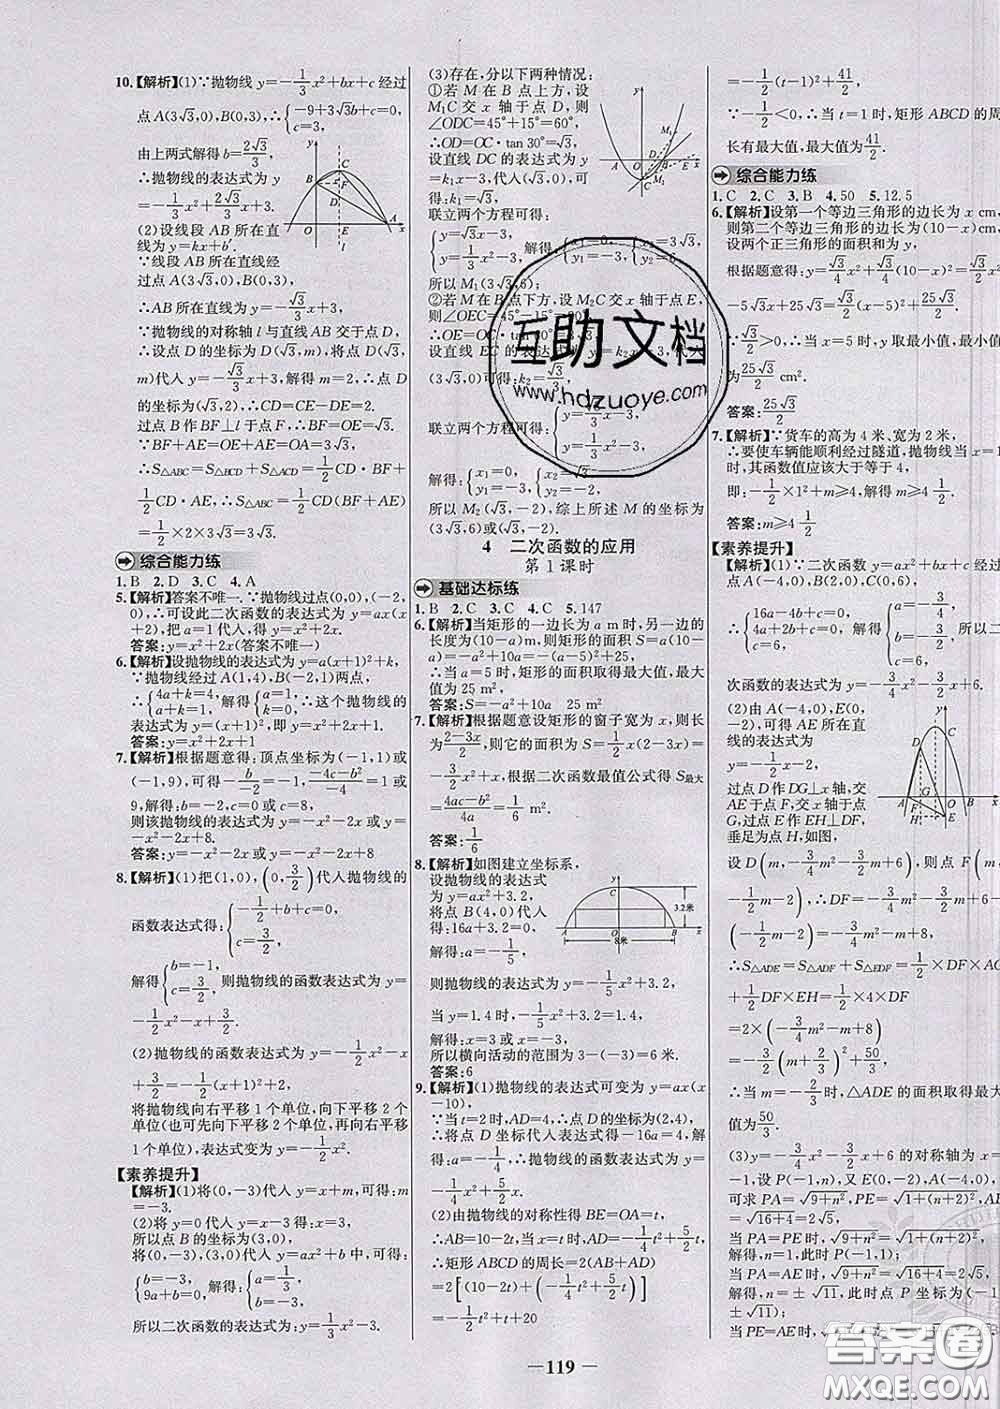 10.【解析】(1)∵抛物线 y=-1/3x²+bx+c 经过
点A(3√3,0),B(0,3),∴{-9+3√3b+c=0, c=3,
由上两式解得 b=2√3/3
∴抛物线的表达式为 y
=-1/3x²+2√3/3x+3
(2)设线段 AB 所在直
线为 y=kx+b′.
∵线段 AB 所在直线经
过点A(3√3,0),B(0,3),
∴AB 所在直线为 y=-√3/3x+3,
∵抛物线的对称轴 l 与直线 AB 交于点 D,
∴设点 D 的坐标为(√3,m),将点 D(√3,
m)代入 y=-√3/3x+3,解得 m=2,∴点 D
的坐标为(√3,2),∴CD=CE-DE=2.
过点 B 作 BF⊥l 于点 F,∴BF=OE=√3.
∵BF+AE=OE+AE=OA=3√3,
∴S△ABC=S△BCD+S△ACD=1/2CD·BF+
1/2CD·AE,∴S△ABC=1/2CD(BF+AE)
=1/2×2×3√3=3√3.
综合能力练
1.B 2.D 3.C 4.A
5.【解析】答案不唯一.∵抛物线过点(0,0),(-2,
0),∴可设此二次函数的表达式为 y=ax(x
+2),把 a=1 代入,得 y=x²+2x.
答案:y=x²+2x(答案不唯一)
6.【解析】设抛物线的表达式为 y=a(x+1)²+k,
∵抛物线经过 A(1,4),B(-2,1)两点,
∴{4a+k=4, a+k=1, 解得{a=1, k=0, ∴这个抛物线的
表达式为 y=(x+1)²,即 y=x²+2x+1.
答案:y=x²+2x+1
7.【解析】根据题意得:顶点坐标为(-1,1)或
(-1,9),可得-b/-2=-1,-4c-b²/-4=1 或
9,解得:b=-2,c=0 或 8,
则该抛物线的表达式为 y=-x²-2x 或
y=-x²-2x+8.
答案:y=-x²-2x 或 y=-x²-2x+8
8.【解析】(1)把(1,0),(0,3/2)代入抛物线的
函数表达式得:{-1/2+b+c=0, c=3/2,
解得{b=-1, c=3/2, 则抛物线的函数表达式为 y=
-1/2x²-x+3/2.
(2)抛物线的函数表达式为 y=-1/2x²-x
+3/2=-1/2(x+1)²+2,
将抛物线向右平移 1 个单位,向下平移 2 个
单位(也可先向下平移 2 个单位,再向右平移
1 个单位),表达式变为 y=-1/2x².
【素养提升】
【解析】(1)将(0,-3)代入 y=x+m,可得:m
=-3.
(2)将 y=0 代入 y=x-3 得:x=3,
所以点 B 的坐标为(3,0),
将(0,-3),(3,0)代入 y=ax²+b 中,可得:
{b=-3, 9a+b=0, 解得:{a=1/3, b=-3,
所以二次函数的表达式为 y=1/3x²-3.
(3)存在,分以下两种情况:
①若 M 在 B 点上方,设
M₁C 交 x 轴于点 D,则
∠ODC=45°+15°=60°,
∴OD=OC·tan 30°=√3,
设直线 DC 的表达式为
y=k₁x-3,代入(√3,0)可得:k₁=√3,
联立两个方程可得:
{y=√3x-3, y=1/3x²-3, 解得:{x₁=0, y₁=-3, {x₂=3√3, y₂=6,
所以 M₁(3√3,6);
②若 M 在 B 点下方,设 M₂C 交 x 轴于点 E,
则∠OEC=45°-15°=30°
∴OE=OC·tan 60°=3√3,
设直线 EC 的表达式为 y=k₂x-3,代入
(3√3,0)可得:k₂=√3/3
联立两个方程可得:{y=√3/3x-3, y=1/3x²-3,
解得:{x₁=0, y₁=-3, {x₂=√3, y₂=-2,
所以 M₂(√3,-2),综上所述 M 的坐标为
(3√3,6)或(√3,-2).
4 二次函数的应用
第 1 课时
基础达标练
1.B 2.C 3.C 4.C 5.147
6.【解析】当矩形的一边长为 a m 时,另一边的
长度为(10-a)m,则矩形的面积 S=a(10
-a)=-a²+10a=-(a-5)²+25,
∴当 a=5 时,矩形的面积取得最大值,最大
值为 25 m².
答案:S=-a²+10a 25 m²
7.【解析】根据题意设矩形的窗子宽为 x,则长
为2-3x/2,则它的面积 S=1/2x(2-3x)=-
3/2x²+x,根据二次函数最值公式得 S最大
=4ac-b²/4a=1/6 m².
答案:1/6
8.【解析】如图建立坐标系,
设抛物线的表达式
为 y=ax²+3.2,
将点 B(4,0)代入
得:16a+3.2=0,
解得:a=-1/5,
则抛物线的函数表达式为 y=-1/5x²+3.2,
当 y=1.4 时,-1/5x²+3.2=1.4,
解得:x=3 或 x=-3,
所以横向活动的范围为 3-(-3)=6 米.
答案:6
9.【解析】(1)抛物线的表达式可变为 y=ax(x
-10),
∵当 t=2 时,AD=4,∴点 D 的坐标为(2,4),
∴将点 D 坐标代入表达式得-16a=4,解得
a=-1/4,∴抛物线的函数表达式为 y=-1/4x²
+5/2x.
(2)由抛物线的对称性得 BE=OA=t,
∴AB=10-2t,当 x=t 时,AD=-1/4t²+5/2t,
∴矩形 ABCD 的周长=2(AB+AD)=
2[(10-2t)+(-1/4t²+5/2t)]
=-1/2t²+t+20
=-1/2(t-1)²+41/2,
∵-1/2<0,∴当 t=1 时,矩形 ABCD 的周
长有最大值,最大值为41/2.
综合能力练
1.C 2.C 3.B 4.50 5.12.5
6.【解析】设第一个等边三角形的边长为 x cm,
则第二个等边三角形的边长为(10-x)cm,
设两个正三角形的面积和为 y,
根据题意得:y=√3/4x²+√3/4(10-x)²=√3/2x²
-5√3x+25√3=√3/2(x-5)²+25√3/2.
∵√3/2>0,∴当 x=5 时,y 取最小值,最小值
为25√3/2 cm².
答案:25√3/2
7.【解析】∵货车的高为 4 米、宽为 2 米,
∴要使车辆能顺利经过隧道,抛物线当 x=1
时,其函数值应该大于等于 4,
即:-1/2×1²+m≥4,解得 m≥4 1/2
答案:m≥4 1/2
【素养提升】
【解析】(1)∵二次函数 y=ax²+bx+c 经过
点 A(-4,0),B(2,0),C(0,6),
∴{16a-4b+c=0, 4a+2b+c=0, c=6, 解得{a=-3/4, b=-3/2, c=6, 所以二
次函数的表达式为 y=-3/4x²-3/2x+6.
(2)由 A(-4,0),E(0,
-2),可得 AE 所在直
线的表达式为
y=-1/2x-2,
过点 D 作 DG⊥x 轴,交
AE 于点 F,交 x 轴于点
G,过点 E 作 EH⊥DF,
垂足为点 H,如图,
设 D(m,-3/4m²-3/2m+6),则点 F(m,
-1/2m-2),∴DF=-3/4m²-3/2m+6-
(-1/2m-2)=-3/4m²-m+8,
∴S△ADE=S△ADF+S△EDF=1/2×DF×AG
+1/2DF×EH=1/2×4×DF
=2×(-3/4m²-m+8)
=-3/2(m+2/3)²+50/3,
∴当 m=-2/3 时,△ADE 的面积取得最大
值为50/3.
(3)y=-3/4x²-3/2x+6 的对称轴为 x=
-1,设 P(-1,n),又 E(0,-2),A(-4,0),
可求 PA=√9+n²,PE=√1+(n+2)²,AE
=√16+4=2√5,
当 PA=PE 时,√9+n²=√1+(n+2)²,
解得,n=1,此时 P(-1,1);
当 PA=AE 时,√9+n²=√16+4=2√5,
解得,n=±√11,此时点 P 坐标为(-1,
±√11);
当 PE=AE 时,√1+(n+2)²
119
互助文档
www.hdzuoye.com
答案圈
MXQE.COM